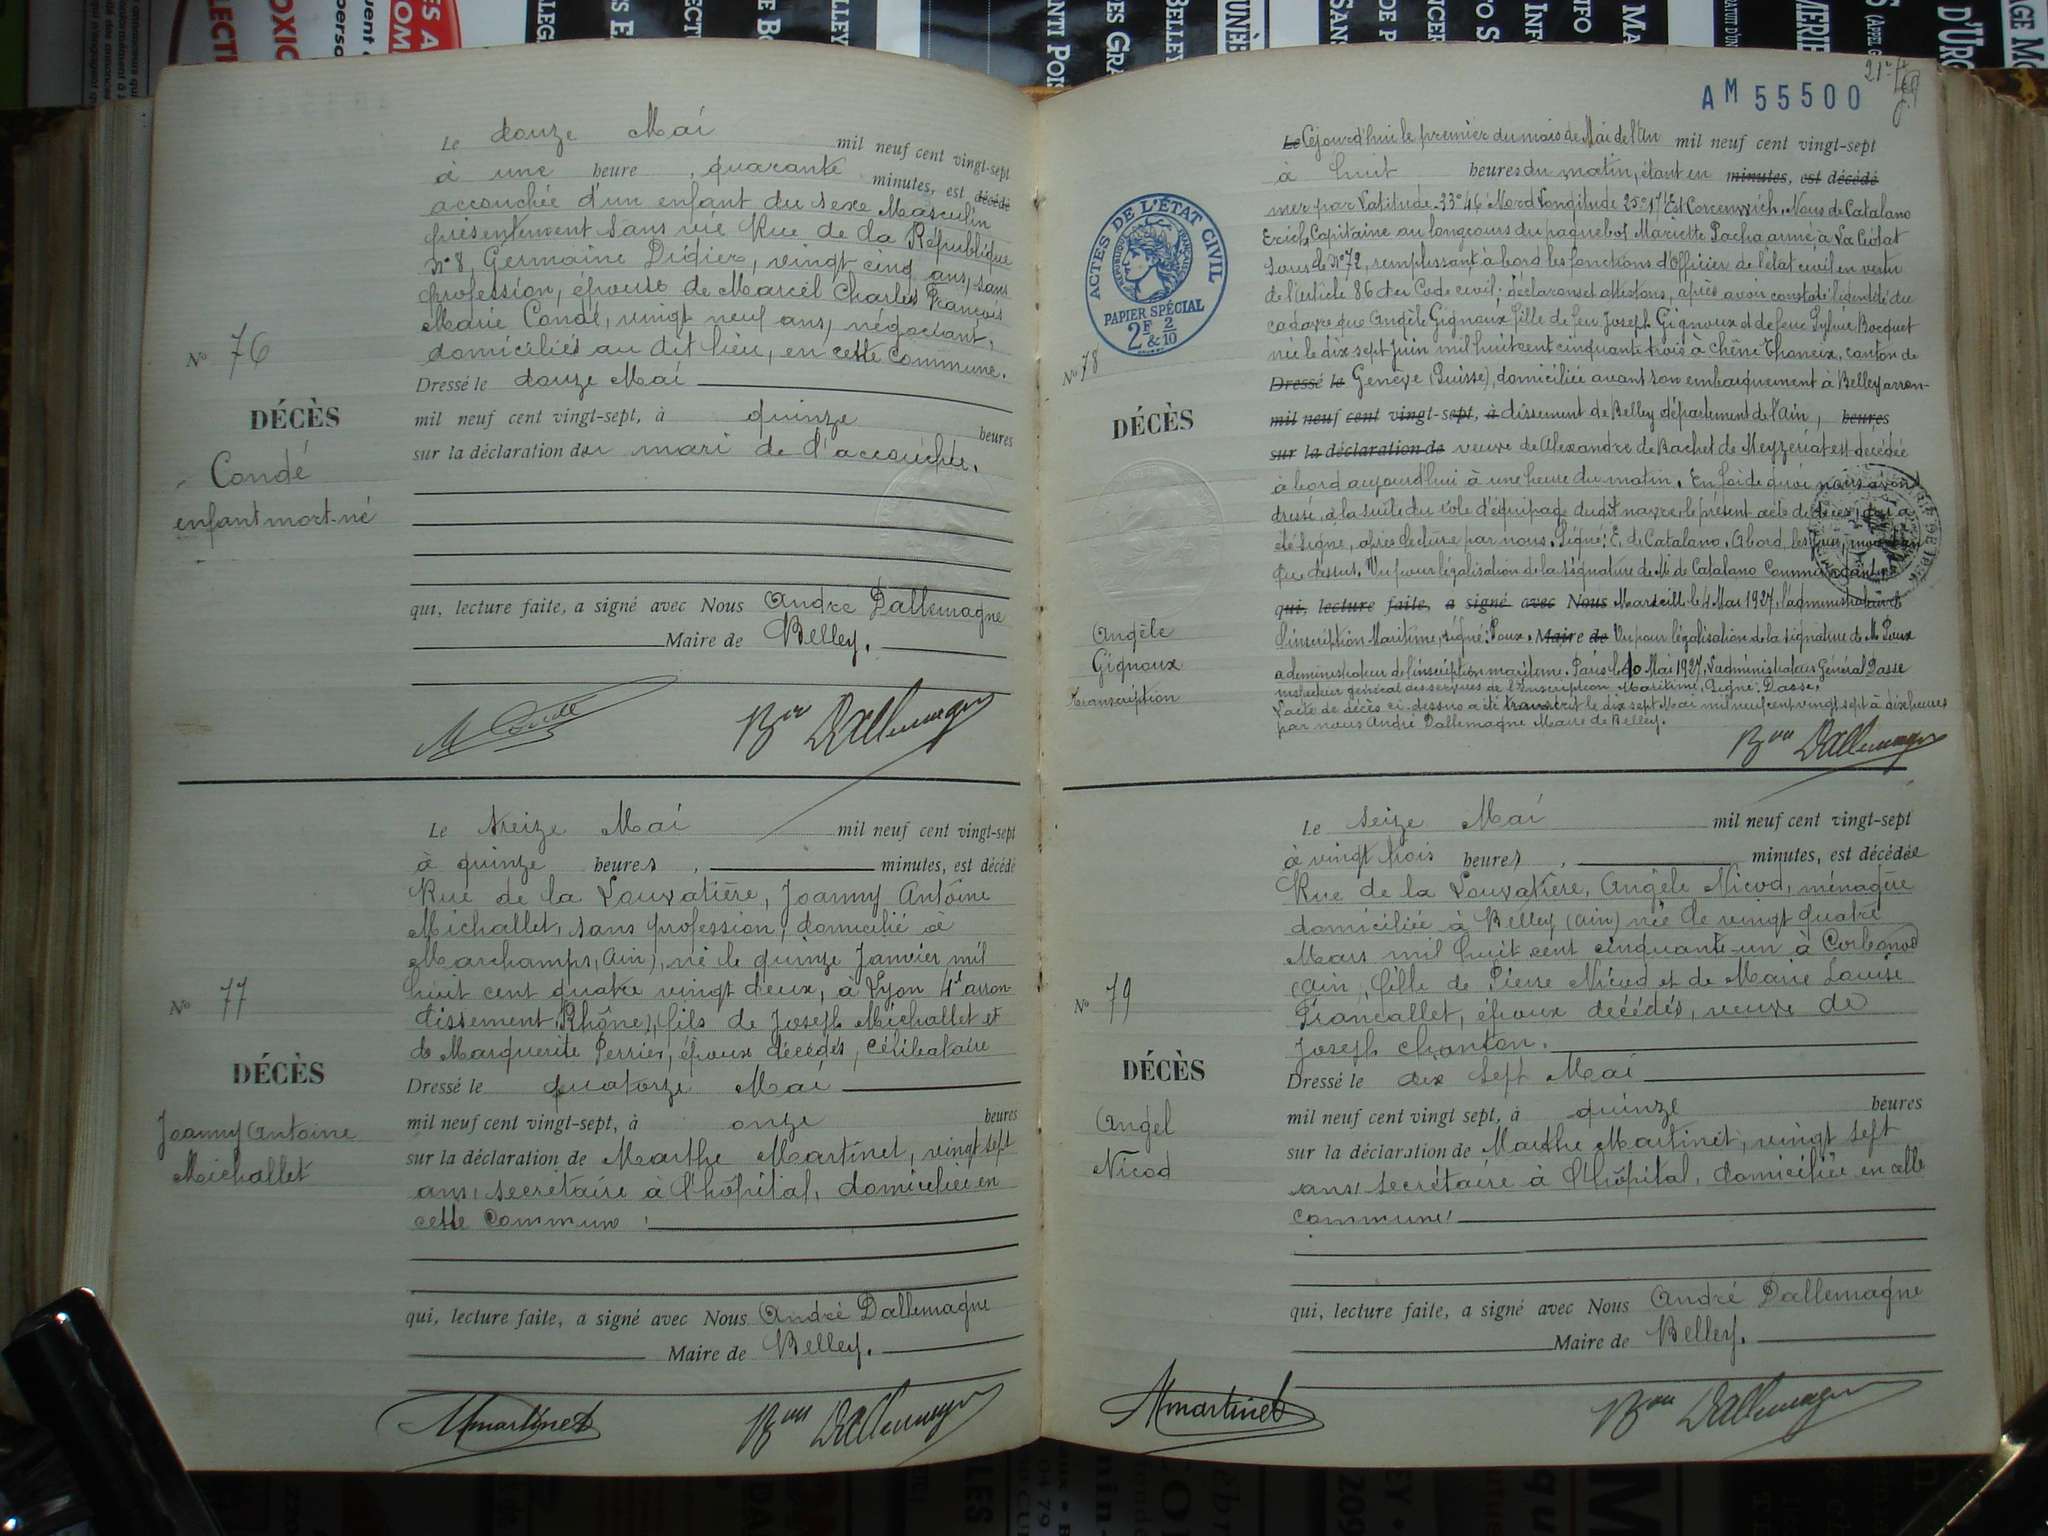 Le douze Mai mil neuf cent vingt-sept
à une heure, quarante minutes, est décédé
accouchée d'un enfant du sexe Masculin
présentement sans vie Rue de la République
N° 8, Germaine Didier, vingt cinq ans, sans
profession, épouse de Marcel Charles François
Marie Condé, vingt neuf ans, négociant,
domiciliés au dit lieu, en cette Commune.
N° 76
Dressé le douze Mai
DÉCÈS
mil neuf cent vingt-sept, à quinze heures
sur la déclaration du mari de l'accouchée.
Condé
enfant mort-né
qui, lecture faite, a signé avec Nous André Dallemagne
Maire de Belley.
Bon Dallemagne
Le treize Mai mil neuf cent vingt-sept
à quinze heures, minutes, est décédé
Rue de la Louvatière, Joanny Antoine
Michallet, sans profession, domicilié à
Marchamps, Ain), né le quinze Janvier mil
huit cent quatre vingt deux, à Lyon 4e arron-
dissement, Rhône), fils de Joseph Michallet et
de Marguerite Perrier, époux décédés, célibataire
N° 77
DÉCÈS
Joanny Antoine
Michallet
Dressé le quatorze Mai
mil neuf cent vingt-sept, à onze heures
sur la déclaration de Marthe Martinet, vingt sept
ans, secrétaire à l'hôpital, domiciliée en
cette Commune.
qui, lecture faite, a signé avec Nous André Dallemagne
Maire de Belley.
MMartinet Bon Dallemagne
AM 55500
Le Cejourd'hui le premier du mois de Mai de l'An mil neuf cent vingt-sept
à huit heures du matin, étant en minutes, est décédé
mer par Latitude 33°46 Nord Longitude 25°17 Est Nous de Catalano
Erich, Capitaine au long cours du paquebot Mariette Pacha armé à La Ciotat
sous le N° 72, remplissant à bord les fonctions d'Officier de l'état civil en vertu
de l'article 86 du Code civil; déclarons et attestons, après avoir constaté l'identité du
cadavre que Angèle Gignoux fille de feu Joseph Gignoux et de feue Sylvie Bocquet
née le dix sept Juin mil huit cent cinquante trois à Chêne Thonex, canton de
Dressé le Genève (Suisse), domiciliée avant son embarquement à Belley arron-
mil neuf cent vingt-sept, à dissement de Belley département de l'Ain, heures
sur la déclaration de veuve de Alexandre de Bachet de Meyzeriat est décédée
à bord aujourd'hui à une heure du matin. En foi de quoi nous avons
dressé, à la suite du rôle d'équipage dudit navire le présent acte de décès, qui a
été signé, après lecture par nous. Signé: E. de Catalano. A bord les jour, mois et an
que dessus. Vu pour légalisation de la signature de M. de Catalano Commandant
qui, lecture faite, a signé avec Nous Marseille le 4 Mai 1927, l'administrateur de
l'inscription Maritime, signé: Poux. Maire de Vu pour légalisation de la signature de M. Poux
administrateur de l'inscription maritime. Paris le 10 Mai 1927, l'administrateur Général Dasse
inspecteur général des services de l'Inscription Maritime, Signé: Dasse.
L'acte de décès ci-dessus a été transcrit le dix sept Mai mil neuf cent vingt sept à dix heures
par nous André Dallemagne Maire de Belley.
Bon Dallemagne
ACTES DE L'ETAT CIVIL
RÉPUBLIQUE FRANÇAISE
PAPIER SPÉCIAL
2F & 2/10
N° 78
DÉCÈS
Angèle
Gignoux
Transcription
Le seize Mai mil neuf cent vingt-sept
à vingt trois heures, minutes, est décédée
Rue de la Louvatière, Angèle Nicod, ménagère
domiciliée à Belley (Ain) née le vingt quatre
Mars mil huit cent cinquante-un à Corbonod
(Ain), fille de Pierre Nicod et de Marie Louise
Francallet, époux décédés, veuve de
Joseph Chanton.
N° 79
DÉCÈS
Angel
Nicod
Dressé le dix sept Mai
mil neuf cent vingt sept, à quinze heures
sur la déclaration de Marthe Martinet, vingt sept
ans, secrétaire à l'hôpital, domiciliée en cette
commune.
qui, lecture faite, a signé avec Nous André Dallemagne
Maire de Belley.
MMartinet Bon Dallemagne